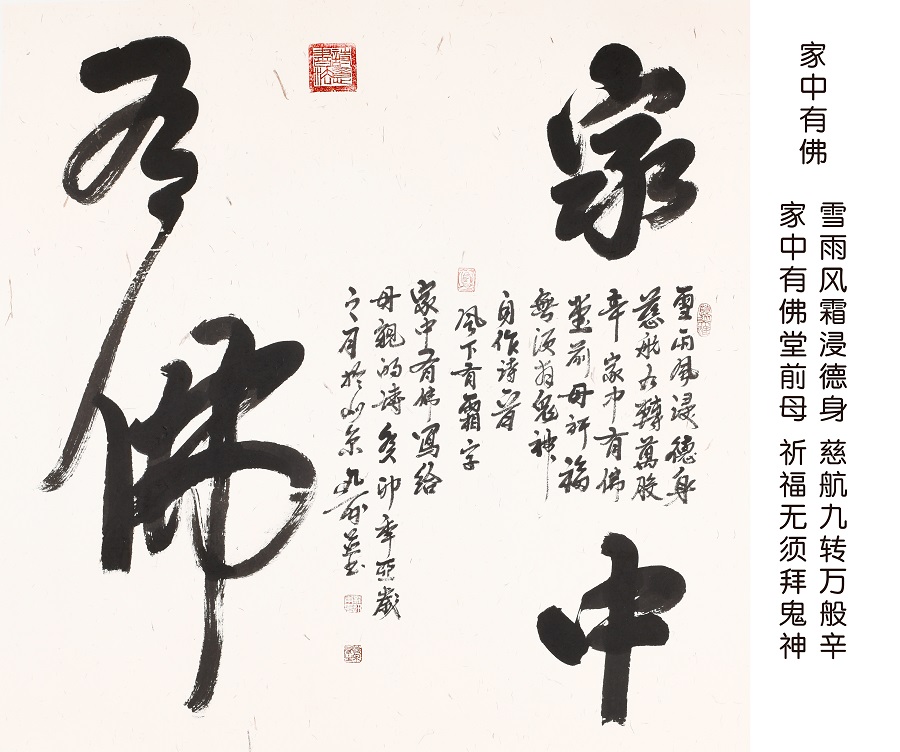 家中
有佛
雪雨风浸德身
慈航九轉萬般
辛家中有佛
堂前母祈福
無须拜鬼神
自作诗首
风下有霜字
家中有佛寫给
母親的诗癸卯年亚歲
之月於
家中有佛
雪雨风霜浸德身 慈航九转万般辛
家中有佛堂前母 祈福无须拜鬼神